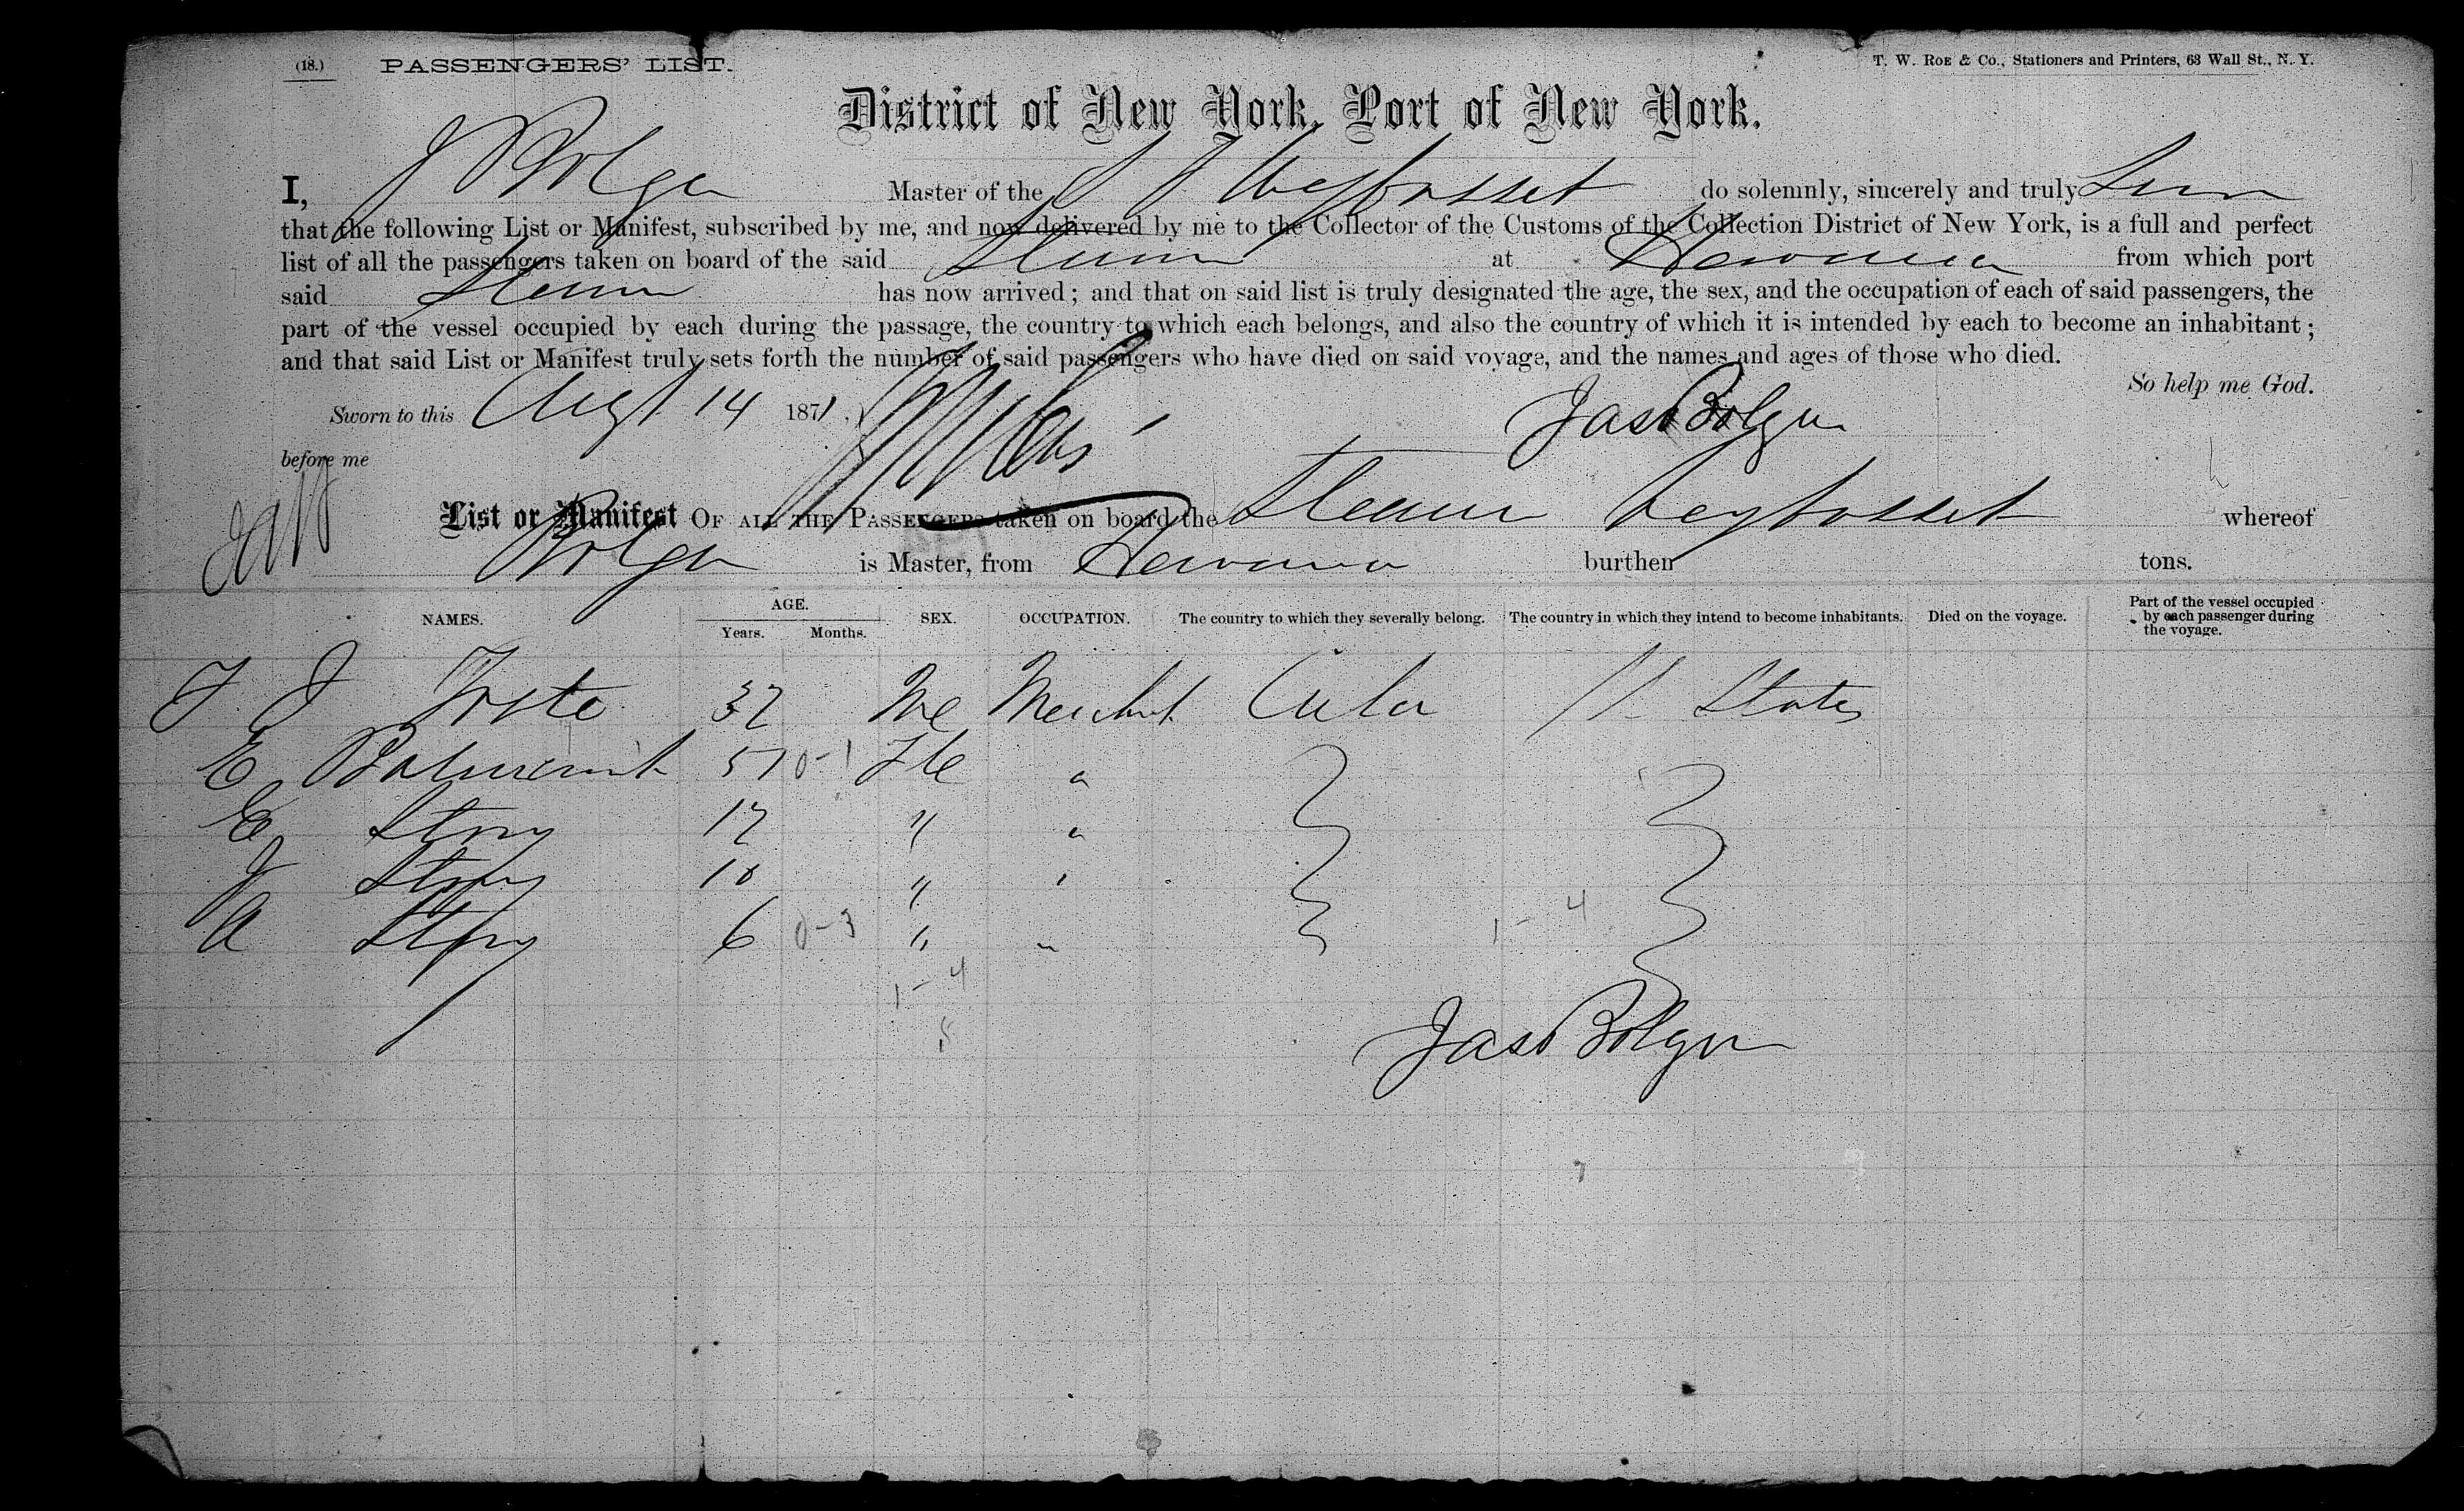 (18.) PASSENGERS' LIST. T. W. ROE & Co., Stationers and Printers, 63 Wall St., N. Y.
District of New York, Port of New York.
I, J Bolger Master of the S S Weybosset do solemnly, sincerely and truly
that the following List or Manifest, subscribed by me, and now delivered by me to the Collector of the Customs of the Collection District of New York, is a full and perfect
list of all the passengers taken on board of the said Steamer at Havana from which port
said Steamer has now arrived; and that on said list is truly designated the age, the sex, and the occupation of each of said passengers, the
part of the vessel occupied by each during the passage, the country to which each belongs, and also the country of which it is intended by each to become an inhabitant;
and that said List or Manifest truly sets forth the number of said passengers who have died on said voyage, and the names and ages of those who died.
So help me God.
Sworn to this Augt 14 1871. Jas Bolger
before me
List or Manifest OF ALL THE PASSENGERS taken on board the Steamer Weybosset whereof
Bolger is Master, from Havana burthen tons.
NAMES. AGE. Years. Months. SEX. OCCUPATION. The country to which they severally belong. The country in which they intend to become inhabitants. Died on the voyage. Part of the vessel occupied by each passenger during the voyage.
J Merchat Cuba U States
E 0-1 Fle "
E Story 17 " "
J Story 10 " "
A Story 6 0-3 " " 1-4
1-4
5
Jas Bolger